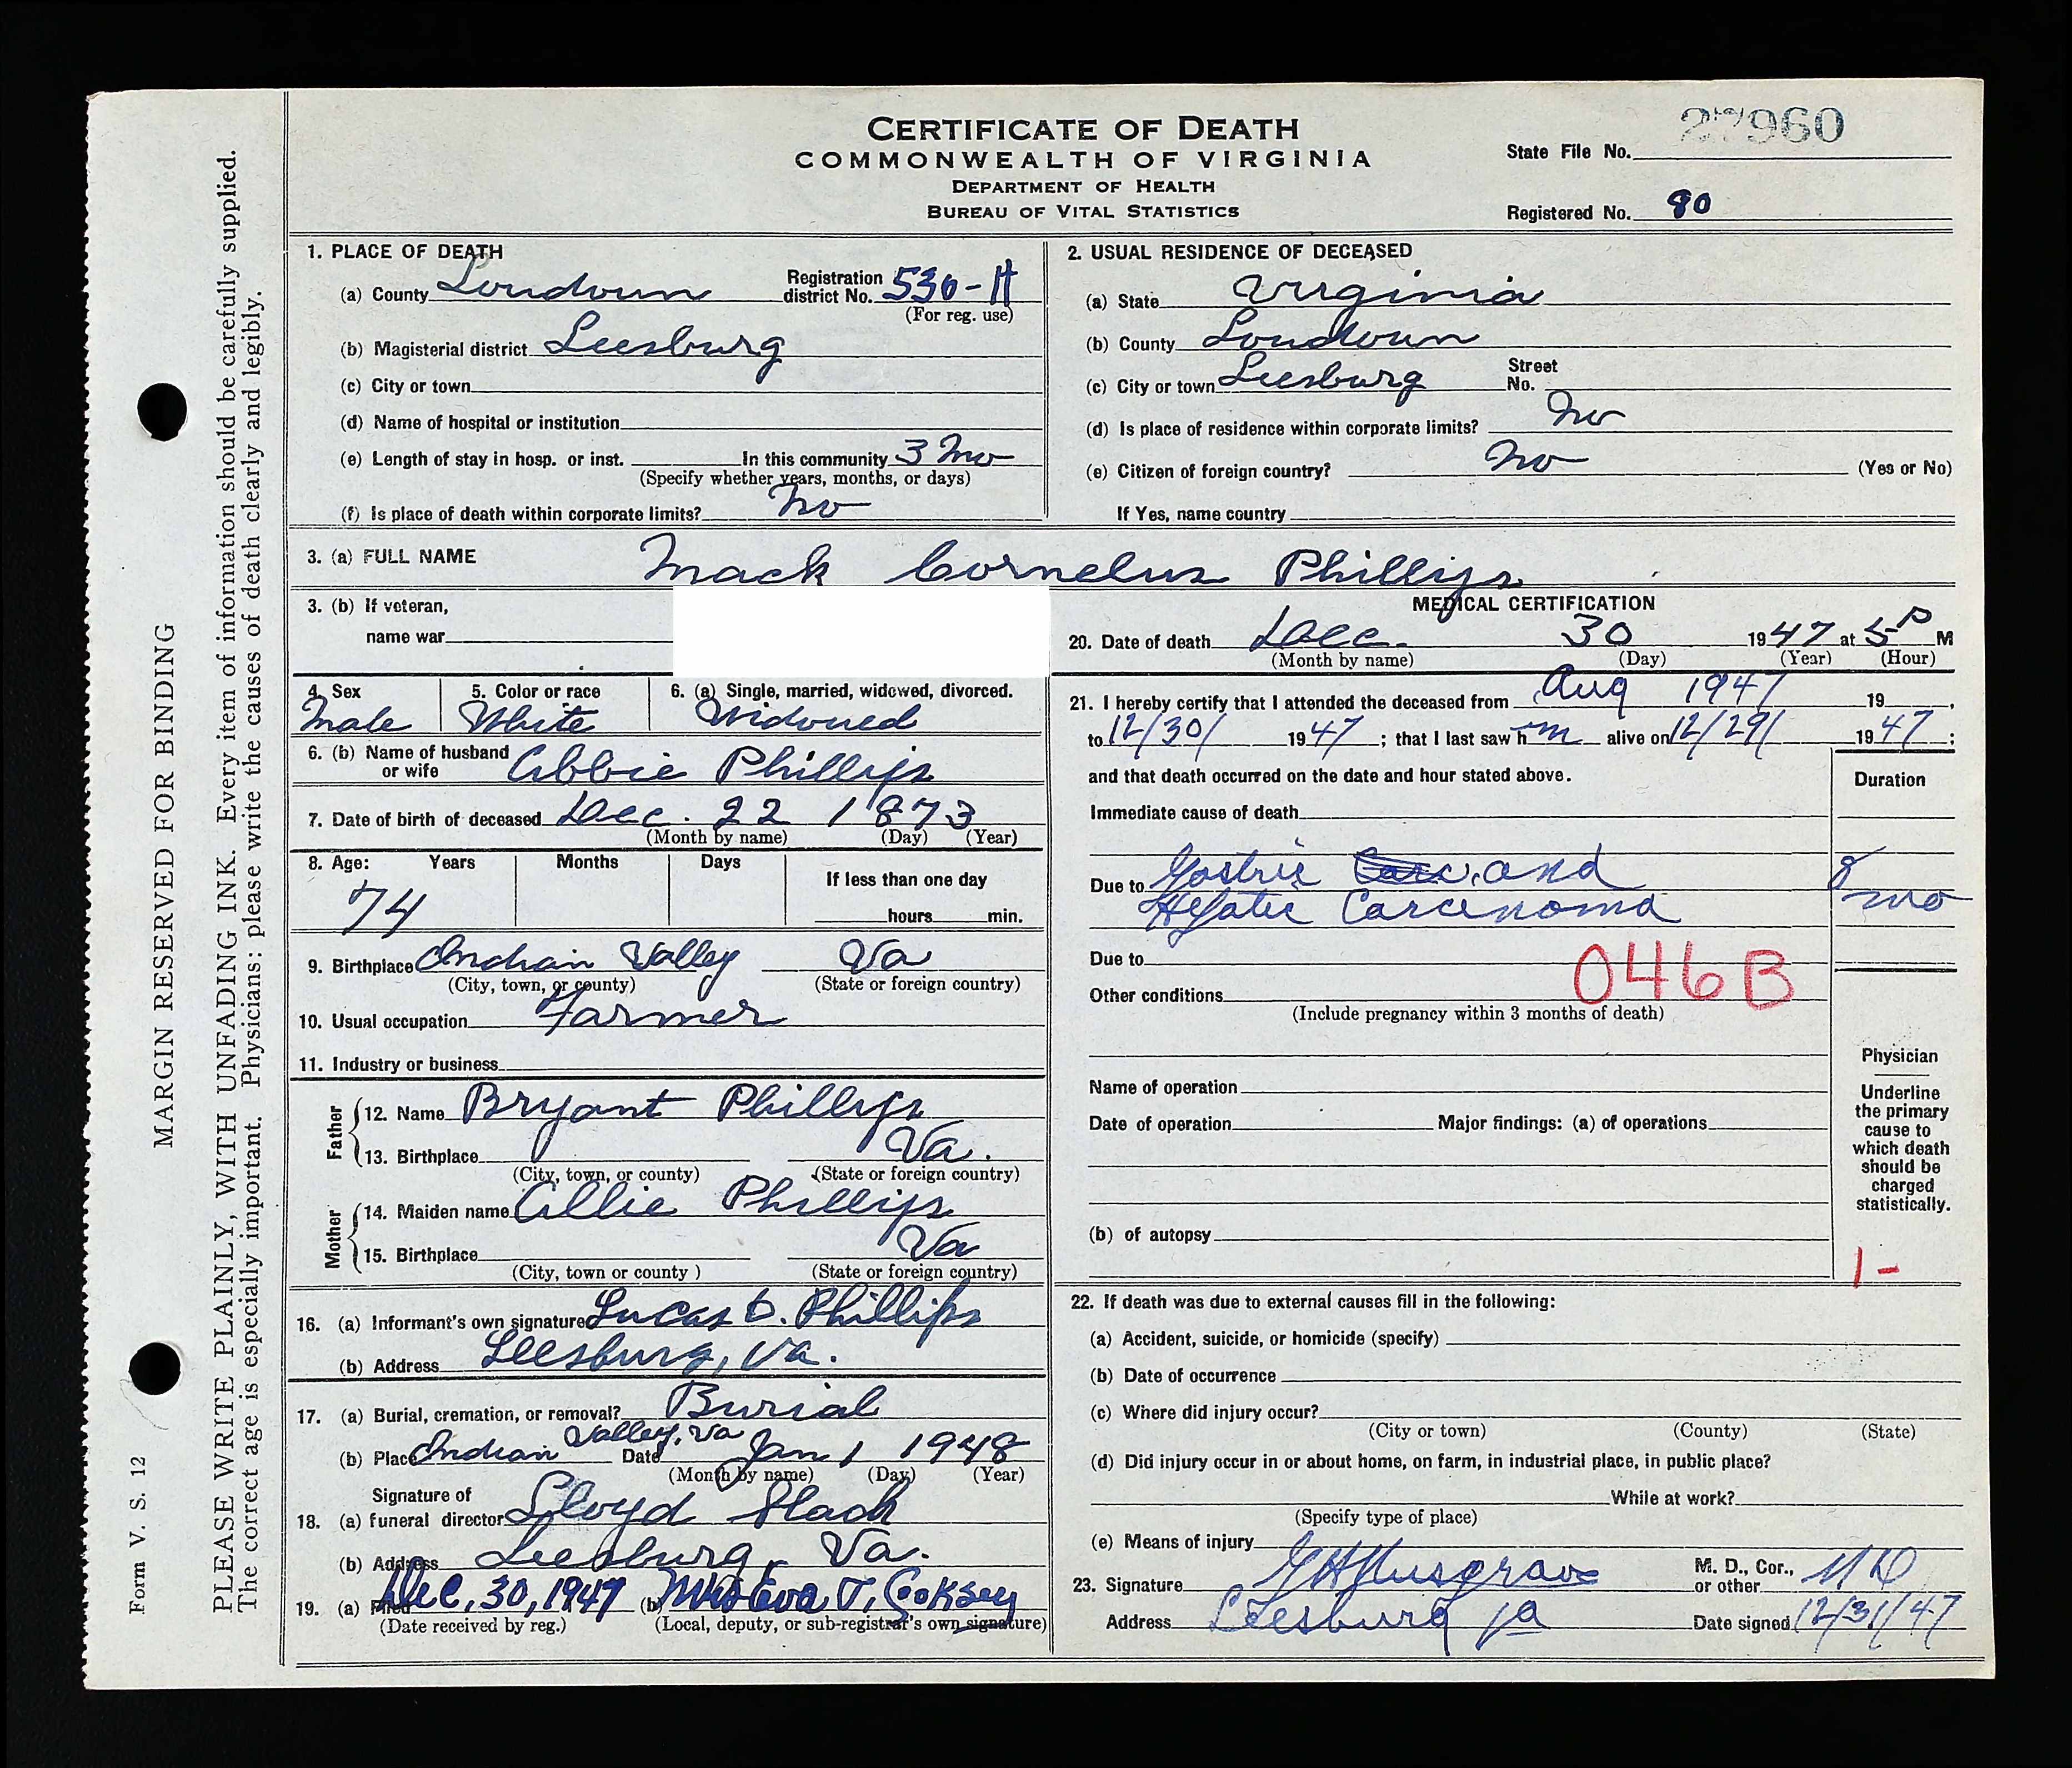 CERTIFICATE OF DEATH
COMMONWEALTH OF VIRGINIA
DEPARTMENT OF HEALTH
BUREAU OF VITAL STATISTICS
State File No. 27960
Registered No. 80
MARGIN RESERVED FOR BINDING
PLEASE WRITE PLAINLY, WITH UNFADING INK. Every item of information should be carefully supplied.
The correct age is especially important. Physicians: please write the causes of death clearly and legibly.
Form V. S. 12
1. PLACE OF DEATH
(a) County Loudoun Registration district No. 530-H
(For reg. use)
(b) Magisterial district Leesburg
(c) City or town
(d) Name of hospital or institution
(e) Length of stay in hosp. or inst. In this community 3 Mo
(Specify whether years, months, or days)
(f) Is place of death within corporate limits? No
2. USUAL RESIDENCE OF DECEASED
(a) State Virginia
(b) County Loudoun
(c) City or town Leesburg Street No.
(d) Is place of residence within corporate limits? No
(e) Citizen of foreign country? No (Yes or No)
If Yes, name country
3. (a) FULL NAME Mack Cornelus Phillips
3. (b) If veteran,
name war
4. Sex 5. Color or race 6. (a) Single, married, widowed, divorced.
Male White Widowed
6. (b) Name of husband or wife Abbie Phillips
7. Date of birth of deceased Dec. 22 1873
(Month by name) (Day) (Year)
8. Age: Years Months Days If less than one day
74 hours min.
9. Birthplace Indian Valley Va
(City, town, or county) (State or foreign country)
10. Usual occupation Farmer
11. Industry or business
Father
12. Name Bryant Phillips
13. Birthplace Va.
(City, town, or county) (State or foreign country)
Mother
14. Maiden name Allie Phillips
15. Birthplace Va
(City, town or county ) (State or foreign country)
16. (a) Informant's own signature Lucas D. Phillips
(b) Address Leesburg, Va.
17. (a) Burial, cremation, or removal? Burial
(b) Place Indian Valley, Va Date Jan 1 1948
(Month by name) (Day) (Year)
Signature of
18. (a) funeral director Lloyd Slack
(b) Address Leesburg, Va.
19. (a) Filed Dec, 30, 1947 (b) Mrs Eva T. Cooksey
(Date received by reg.) (Local, deputy, or sub-registrar's own signature)
MEDICAL CERTIFICATION
20. Date of death Dec. 30 1947 at 5 P M
(Month by name) (Day) (Year) (Hour)
21. I hereby certify that I attended the deceased from Aug 1947 19 ,
to 12/30/ 1947 ; that I last saw h im alive on 12/29/ 1947 ;
and that death occurred on the date and hour stated above.
Duration
Immediate cause of death
Due to Gastric and 8
Hepatic Carcinoma mo
Due to
046B
Other conditions
(Include pregnancy within 3 months of death)
Name of operation
Date of operation Major findings: (a) of operations
(b) of autopsy
Physician
Underline
the primary
cause to
which death
should be
charged
statistically.
1-
22. If death was due to external causes fill in the following:
(a) Accident, suicide, or homicide (specify)
(b) Date of occurrence
(c) Where did injury occur?
(City or town) (County) (State)
(d) Did injury occur in or about home, on farm, in industrial place, in public place?
While at work?
(Specify type of place)
(e) Means of injury
23. Signature GH Musgrave M. D., Cor., or other MD
Address Leesburg Va Date signed 12/31/47